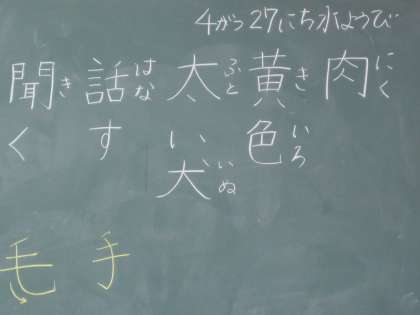 4がつ27にち水ようび
肉にく
黄色きいろ
太いふとい、犬いぬ
話すはなす
聞くきく
手
毛